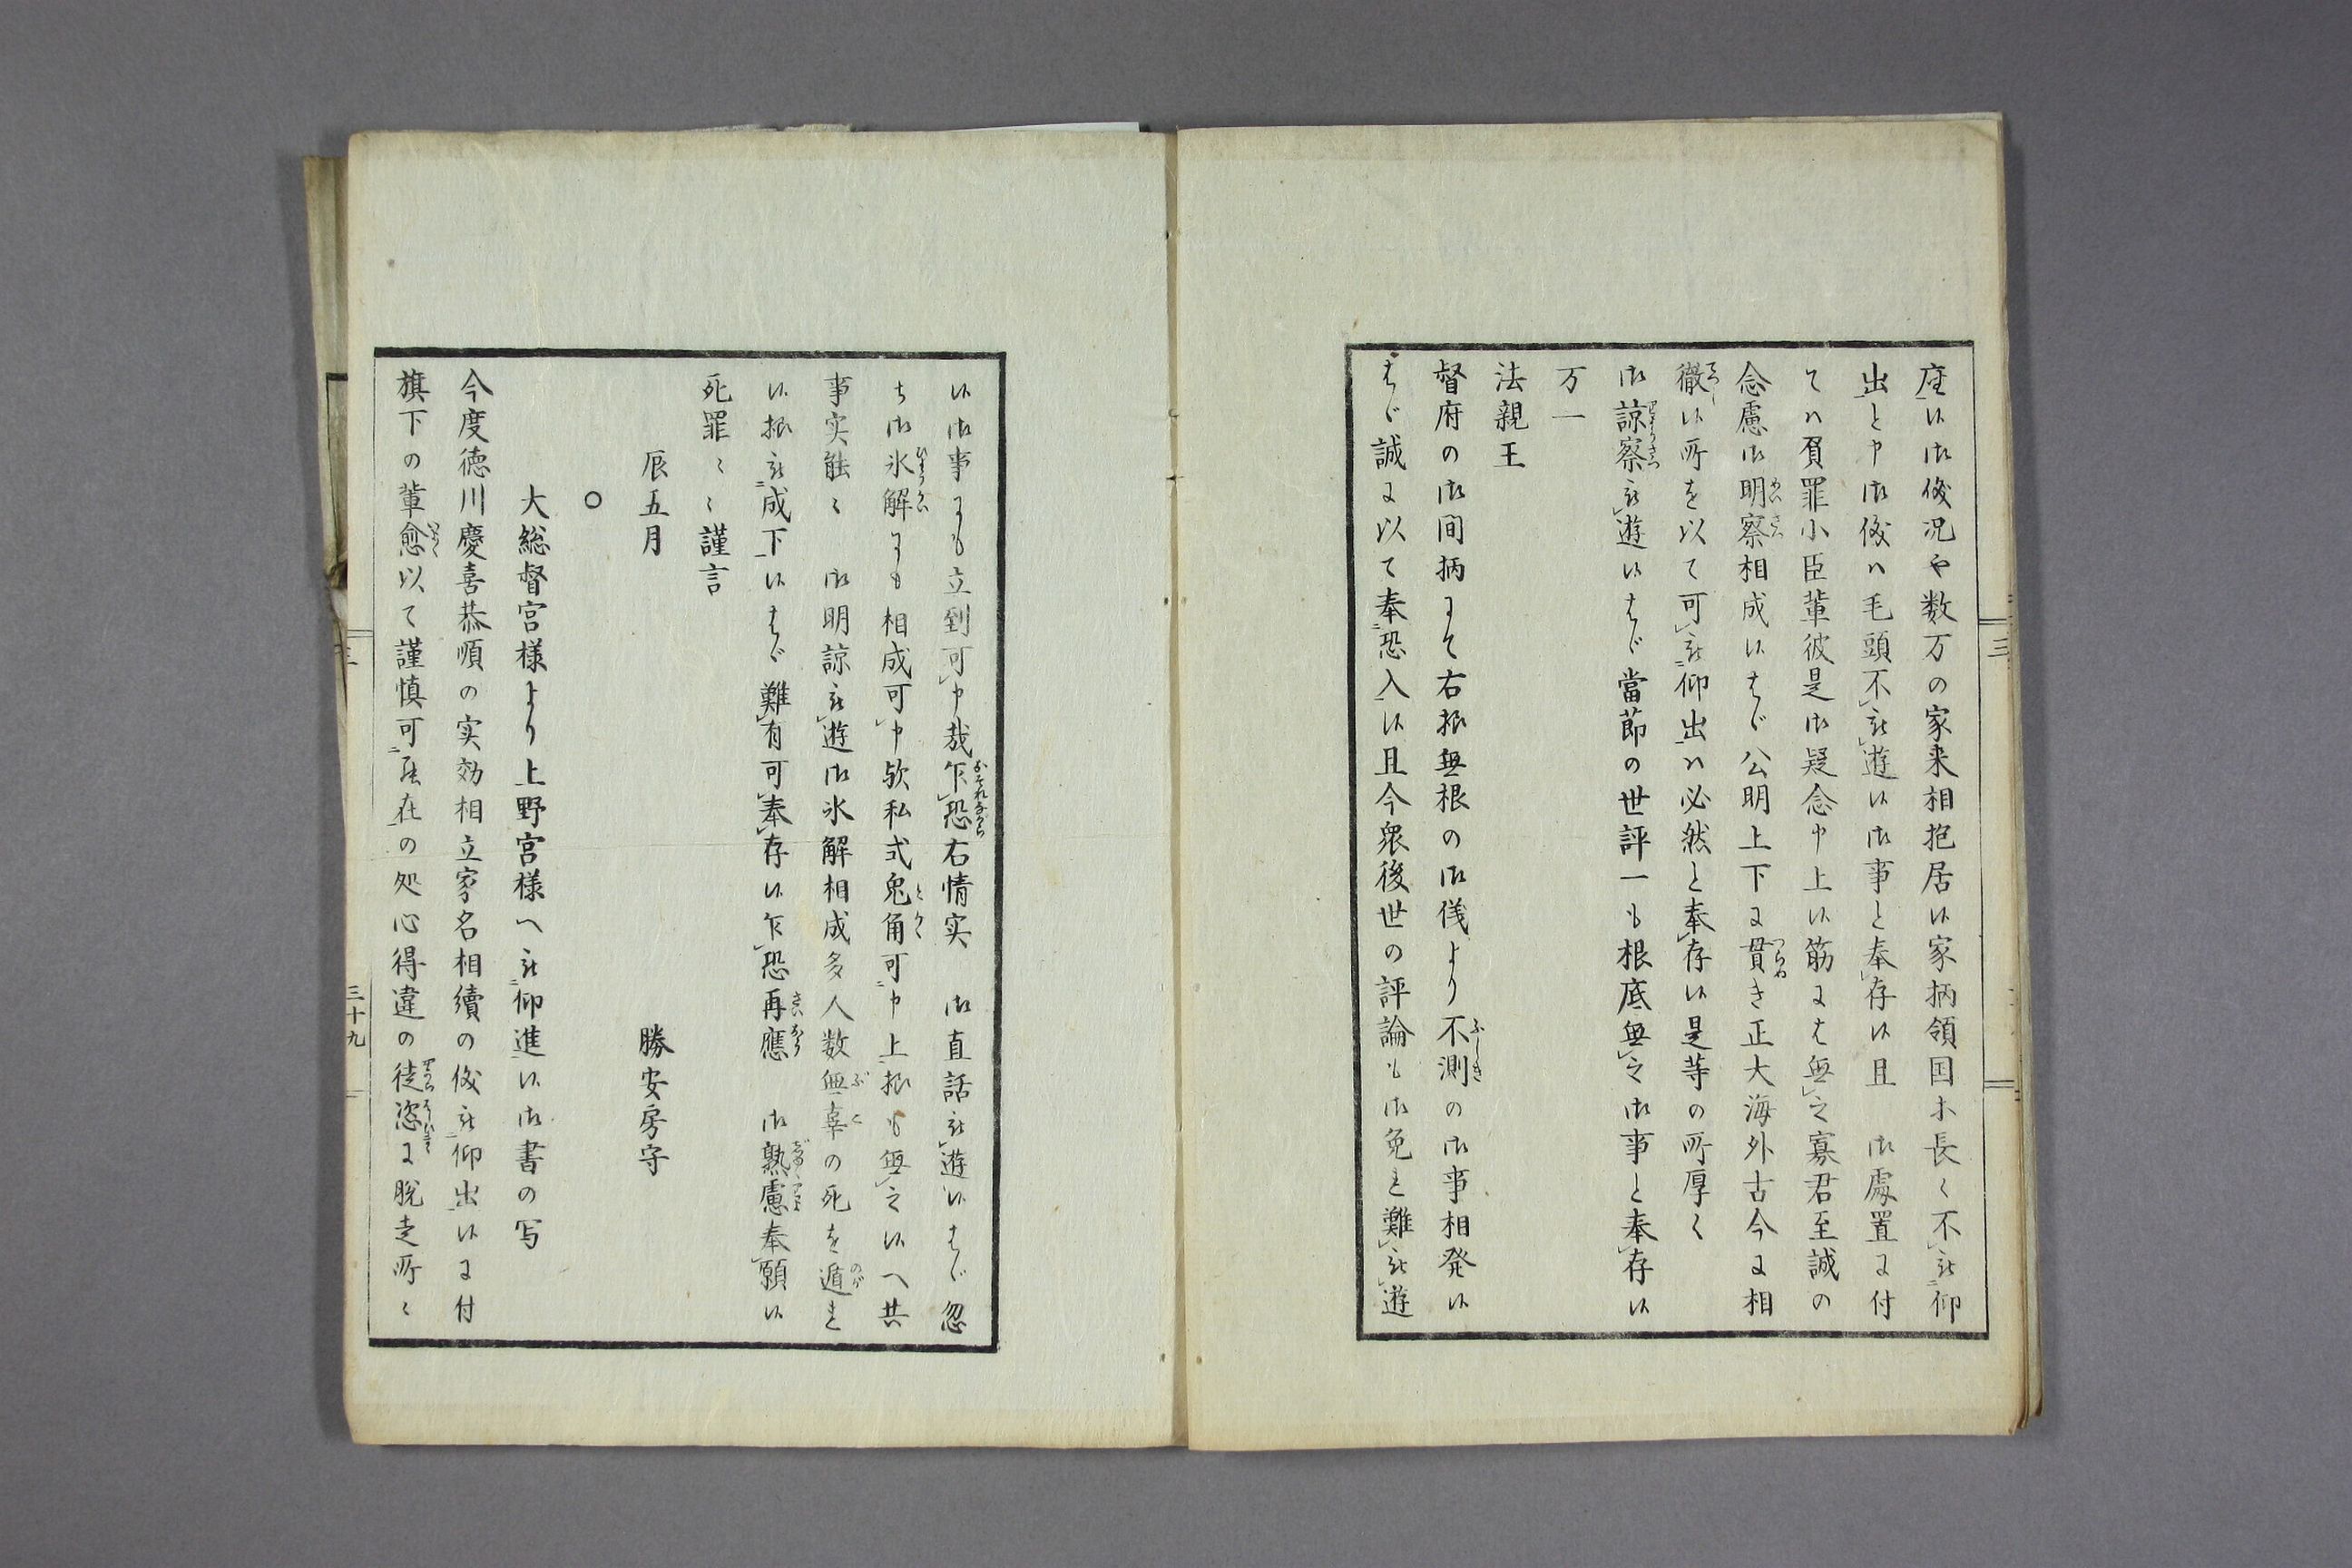 座候御儀況や数万の家来相抱居候家柄領国ホ長く不被仰
出と申御儀ハ毛頭不被遊候御事と奉存候且　御處置に付
てハ負罪小臣輩彼是御疑念申上候筋にも無之寡君至誠の
念慮御明察相成候ハヾ公明上下に貫き正大海外古今に相
徹候所を以て可被仰出ハ必然と奉存候是等の所厚く
御諒察被遊候ハヾ當節の世評一も根底無之御事と奉存候
万一
法親王
督府の御間柄にて右様無根の御儀より不測の御事相発候
ハヾ誠に以て奉恐入候且今衆後世の評論も御免れ難被遊
候御事にも立到可申哉乍恐右情実　御直話被遊候ハヾ忽
ち御氷解にも相成可申欤私式兎角可申上様も無之候へ共
事実能々　御明諒被遊御氷解相成多人数無辜の死を遁れ
候様被成下候ハヾ難有可奉存候乍恐再應　御熟慮奉願候
死罪々々謹言
辰五月
勝安房守
○
大総督宮様より上野宮様へ被仰進候御書の写
今度徳川慶喜恭順の実効相立家名相續の儀被仰出候に付
旗下の輩愈以て謹慎可罷在の処心得違の徒恣に脱走所々
三
三十九
三